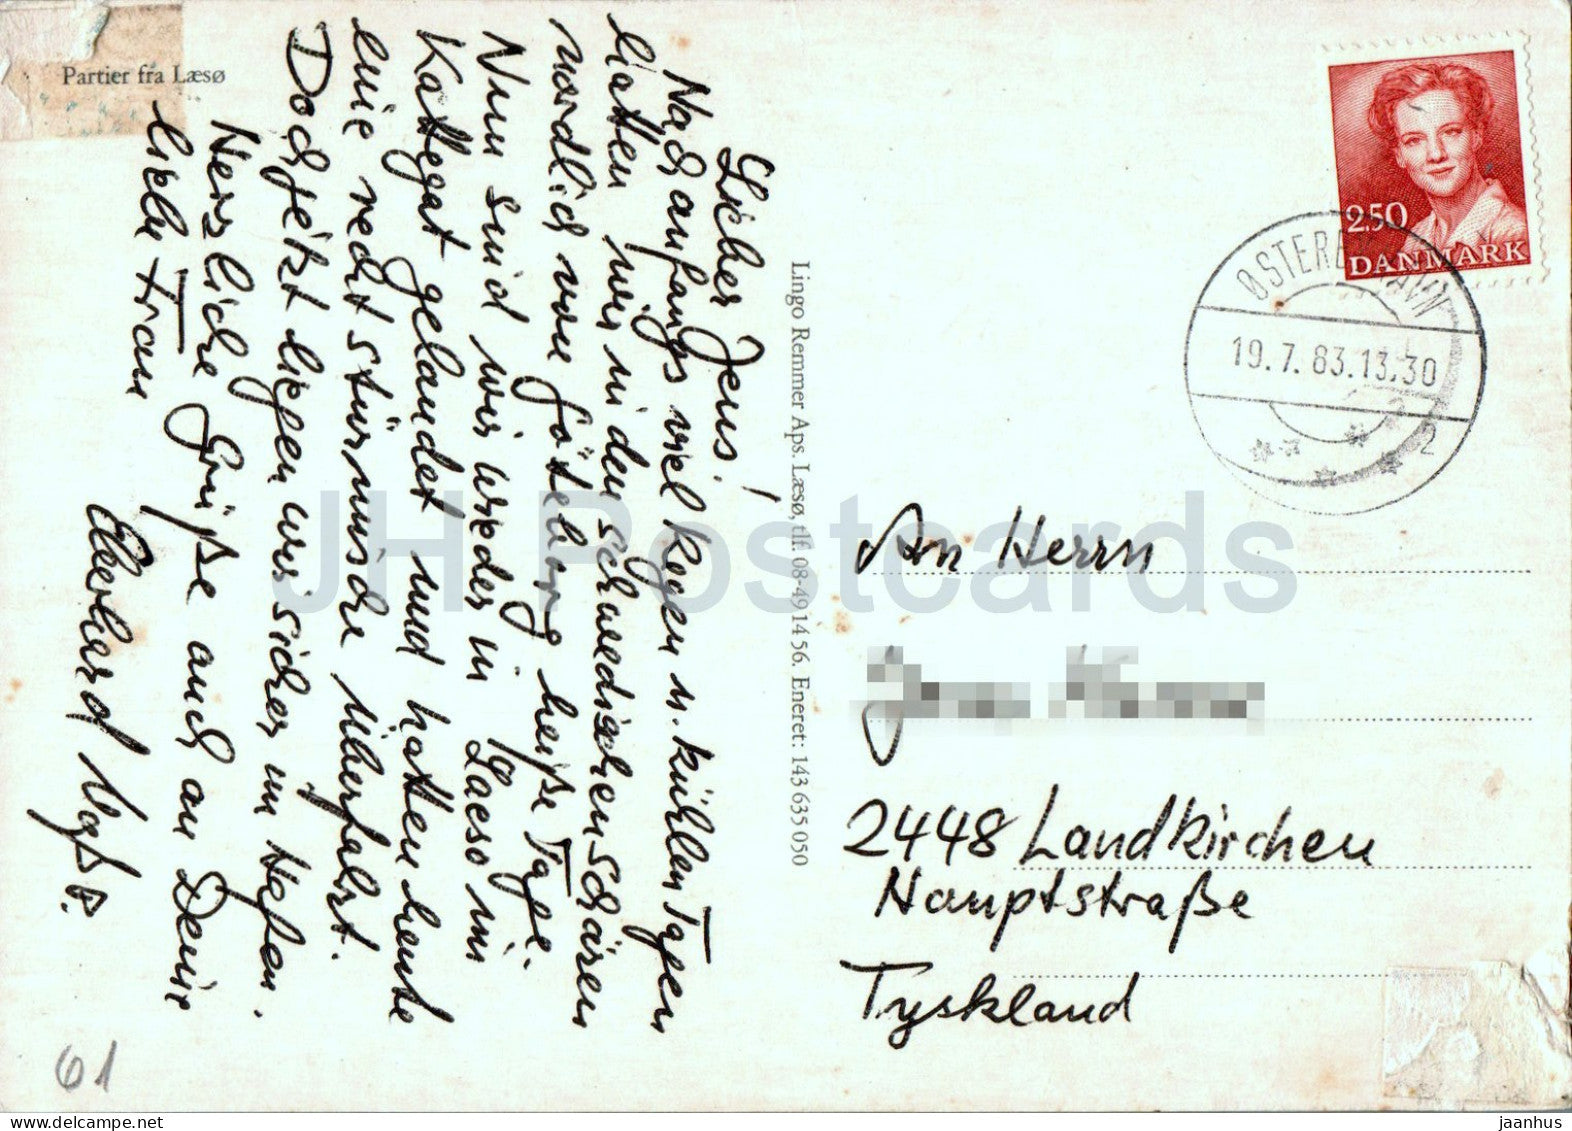 Partier fra Læsø
Lieber Jens!
Nach anfangs viel Regen u. kühlen Tagen
hatten wir in den schwedischen Schären
nördlich von Göteborg heiße Tage.
Nun sind wir wieder in Laesø im
Kattegat gelandet und hatten heute
eine recht stürmische Überfahrt.
Doch jetzt liegen wir sicher im Hafen.
Herzliche Grüße auch an Deine
liebe Frau
Eberhard
Lingo Remmer Aps. Læsø, tlf. 08-49 14 56. Eneret: 143 635 050
2.50
DANMARK
ØSTERBYHAVN
19.7.83.13.30
2
An Herrn
2448 Landkirchen
Hauptstraße
Tyskland
61
JH Postcards
jaanhus
www.delcampe.net